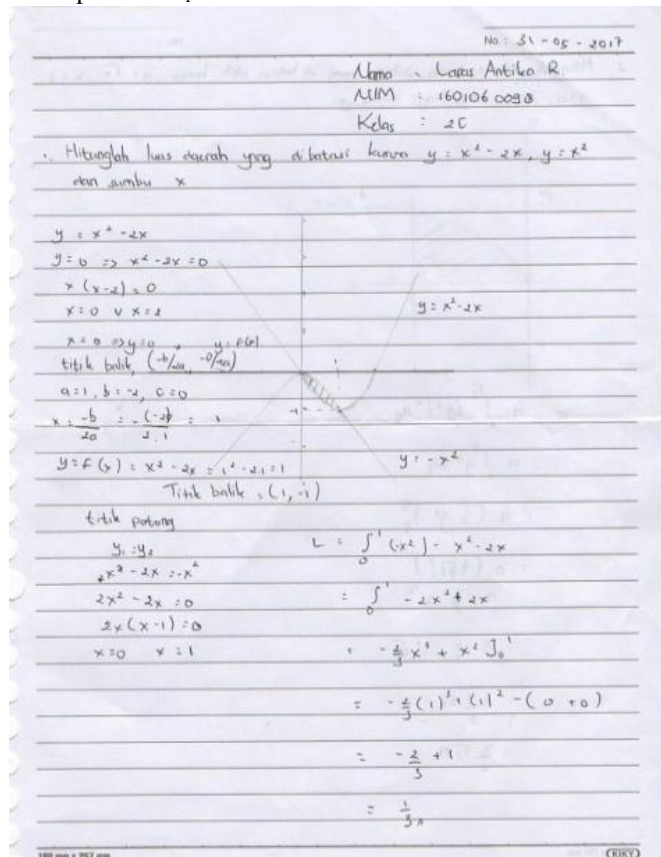 No : 31 - 05 - 2017
Nama : Laras Antika R
NIM : 1601060098
Kelas : 2C
Hitunglah luas daerah yang dibatasi kurva y = x² - 2x, y = x²
dan sumbu x
y = x² - 2x
y = 0 => x² - 2x = 0
x (x - 2) = 0
x = 0 v x = 2
x = 0 => y = 0 , y = f(x)
titik balik, (-b/2a, -D/4a)
a = 1, b = -2, c = 0
x = -b/2a = -(-2)/2.1 = 1
y = F(x) = x² - 2x = 1² - 2.1 = 1
Titik balik = (1, -1)
y = x² - 2x
y = -x²
titik potong
y₁ = y₂
x² - 2x = -x²
2x² - 2x = 0
2x (x - 1) = 0
x = 0 x = 1
L = ∫₀¹ (-x²) - x² - 2x
= ∫₀¹ - 2x² + 2x
= -2/3 x³ + x² ]₀¹
= -2/3 (1)³ + (1)² - (0 + 0)
= -2/3 + 1
= 1/3
KIKY